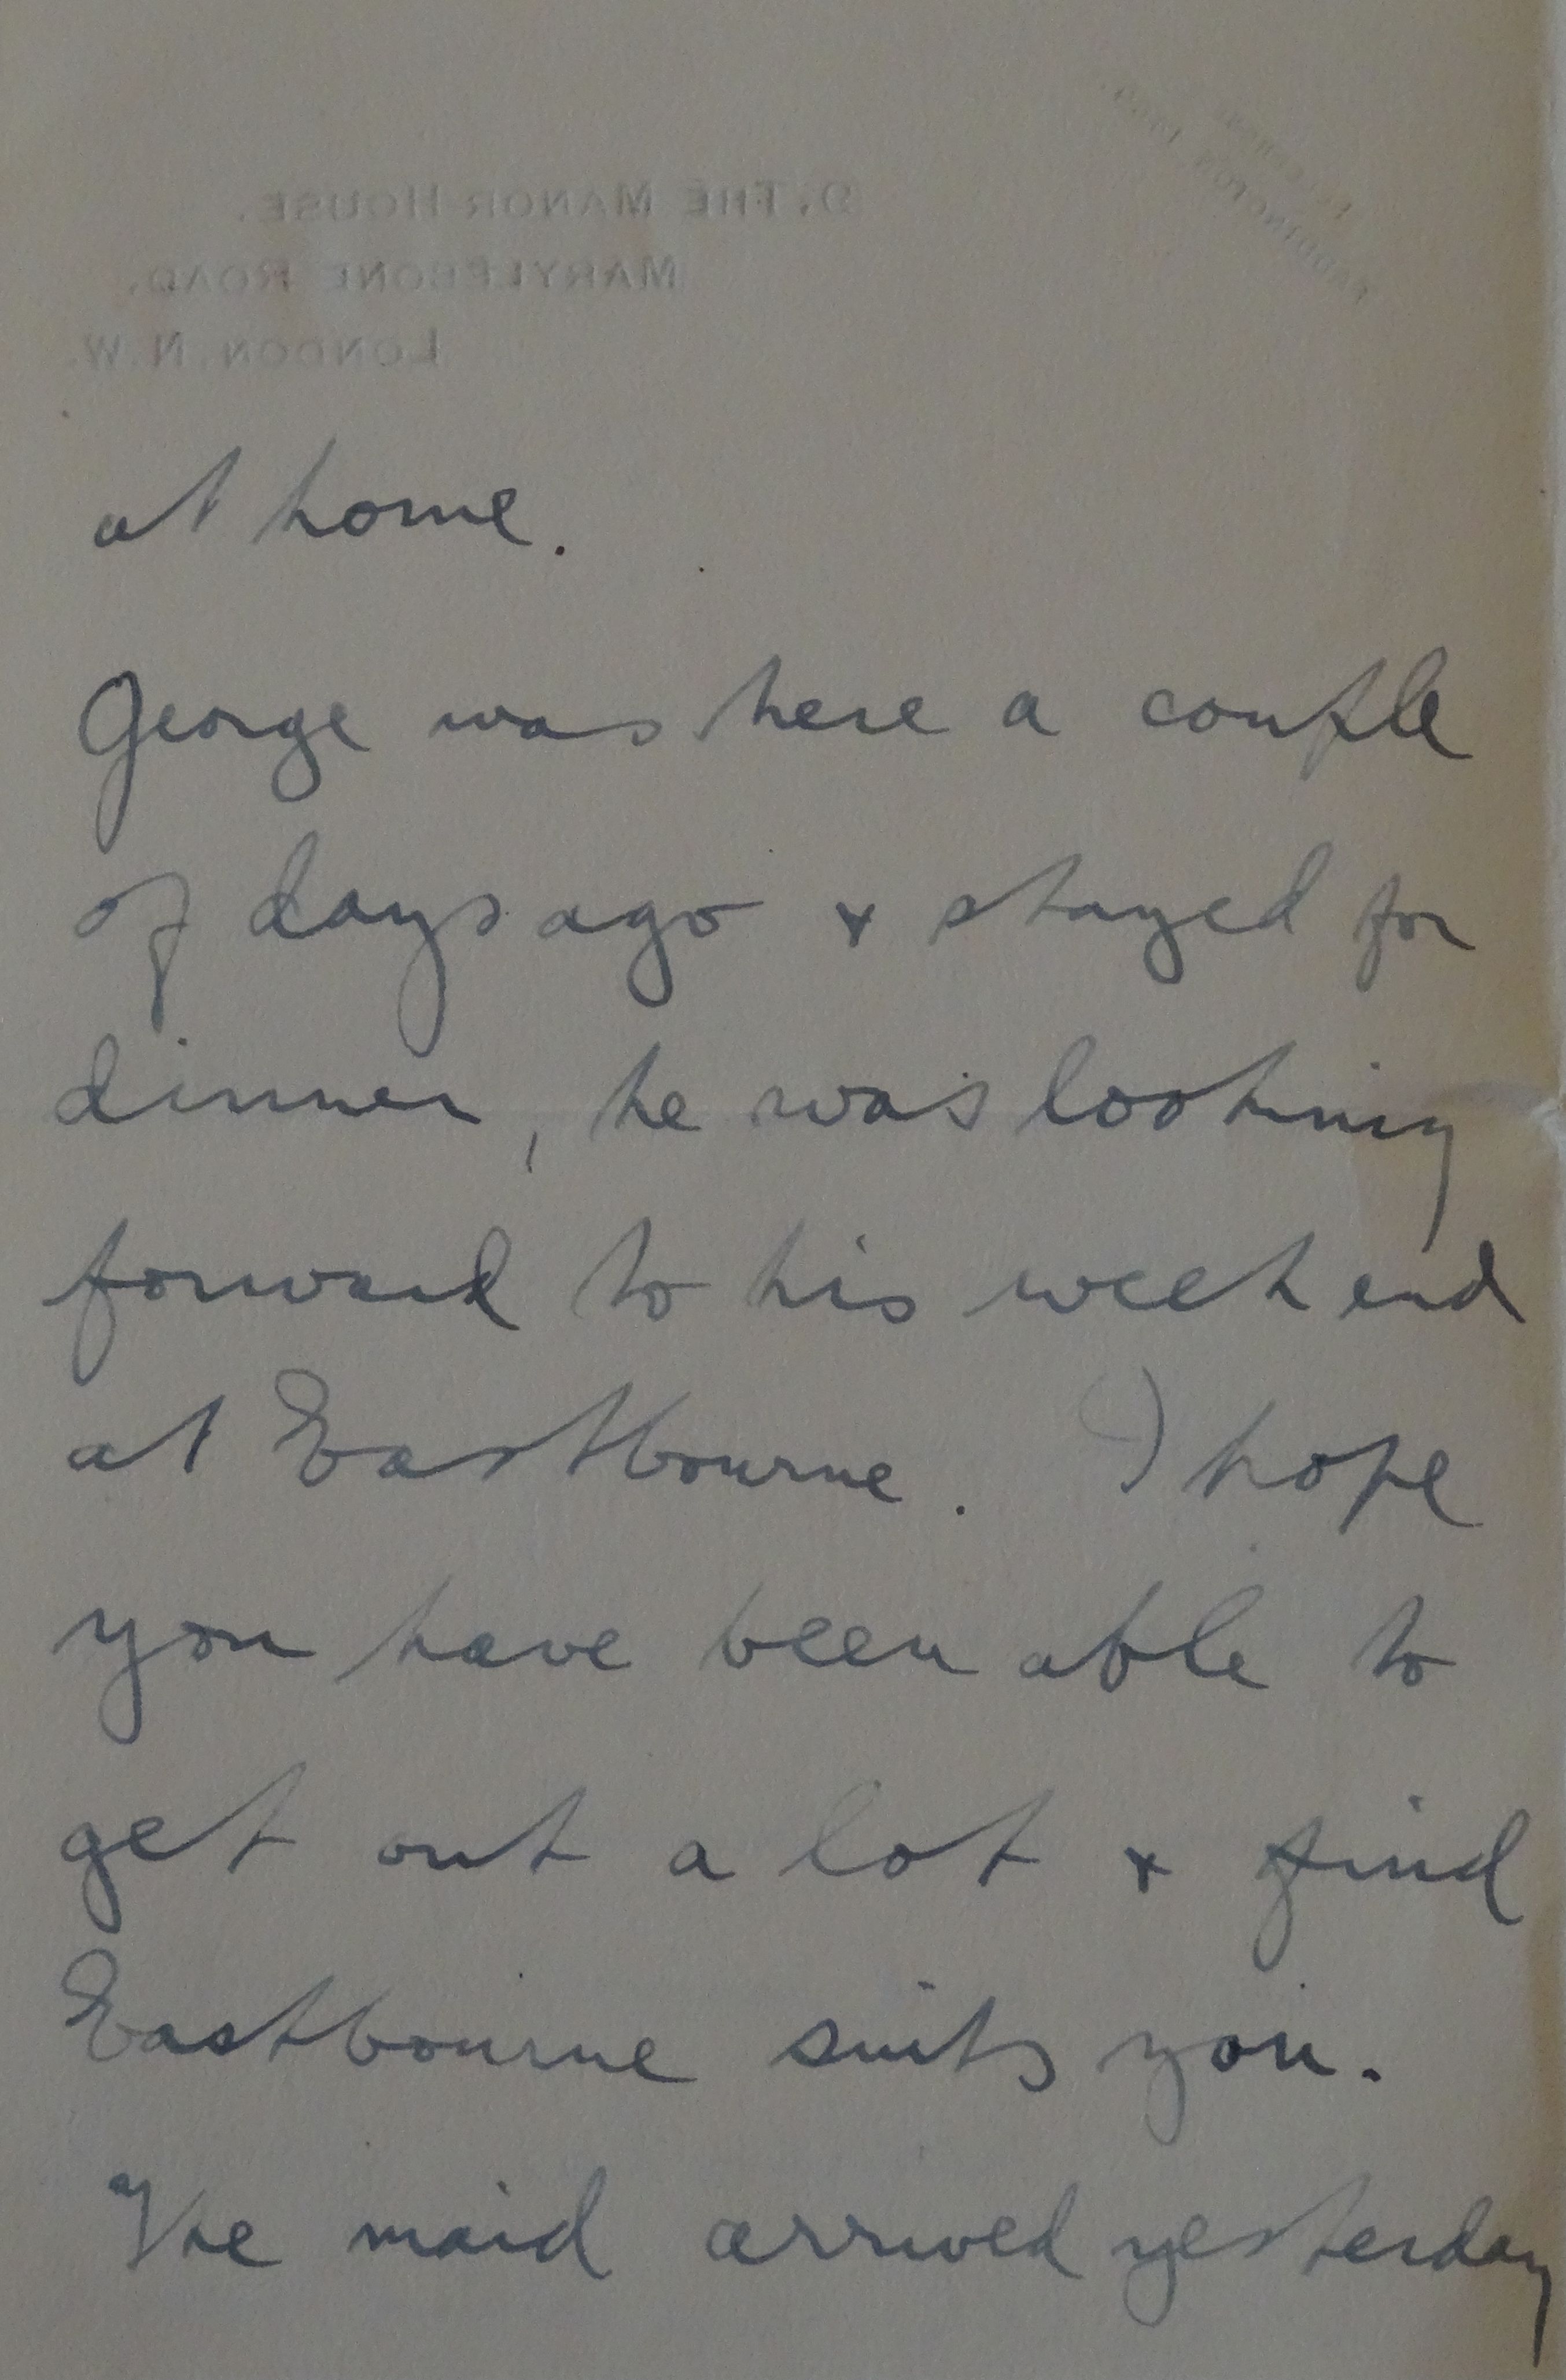 9, THE MANOR HOUSE.
MARYLEBONE ROAD.
LONDON. N.W.
at home.
George was here a couple
of days ago & stayed for
dinner, he was looking
forward to his week end
at Eastbourne. I hope
you have been able to
get out a lot & find
Eastbourne suits you.
The maid arrived yesterday